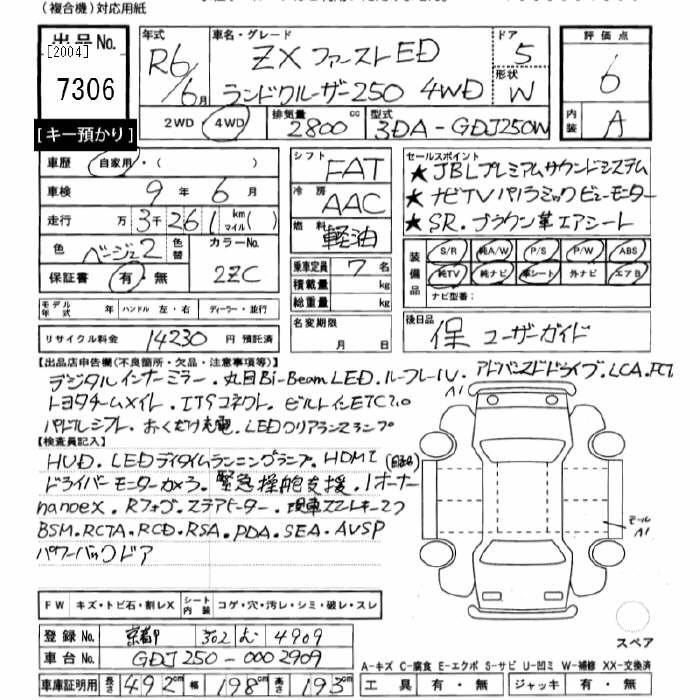 (複合機)対応用紙
出品No.
[2004]
7306
[キー預かり]
年式 R6/6月
車名・グレード ZX ファーストED
ランドクルーザー250 4WD
ドア 5
形状 W
評価点 6
内装 A
2WD 4WD 排気量 2800cc 型式 3DA-GDJ250W
車歴 自家用・( )
車検 9年 6月
走行 万3千261km マイル( )
色 ベージュ2 色替 カラーNo. 2ZC
保証書 有・無
シフト FAT
冷房 AAC
燃料 軽油
乗車定員 7名
積載量 kg
総重量 kg
セールスポイント
★JBLプレミアムサウンドシステム
★ナビTVパノラミックビューモニター
★SR.ブラウン革エアシート
装備品 S/R 純A/W P/S P/W ABS
純TV 純ナビ 革シート 外ナビ エアB
ナビ型番:
モデル年式 年 ハンドル 左・右 ディーラー・並行
リサイクル料金 14230 円 預託済
名変期限 月 日
後日品 保 ユーザーガイド
【出品店申告欄(不良箇所・欠品・注意事項等)】
デジタルインナーミラー.丸目Bi-Beam LED.ルーフレール.アドバンスドドライブ.LCA.FCTA
トヨタチームメイト.ITSコネクト.ビルトインETC2.0
パドルシフト.おくだけ充電.LEDクリアランスランプ
【検査員記入】
HUD.LEDデイタイムランニングランプ.HDMI
ドライバーモニターカメラ.緊急操舵支援.1オーナー
nanoeX.Rフォグ.ステアヒーター.現車スマートキー2ケ
BSM.RCTA.RCD.RSA.PDA.SEA.AVSP
パワーバックドア
A1
モール A1
FW キズ・トビ石・割レX シート内装 コゲ・穴・汚レ・シミ・破レ・スレ
登録No. 京都 302 む 4909
車台No. GDJ250-0002909
スペア
A-キズ C-腐食 E-エクボ S-サビ U-凹ミ W-補修 XX-交換済
車庫証明用 長さ 492cm 幅 198cm 高さ 193cm
工具 有・無 ジャッキ 有・無